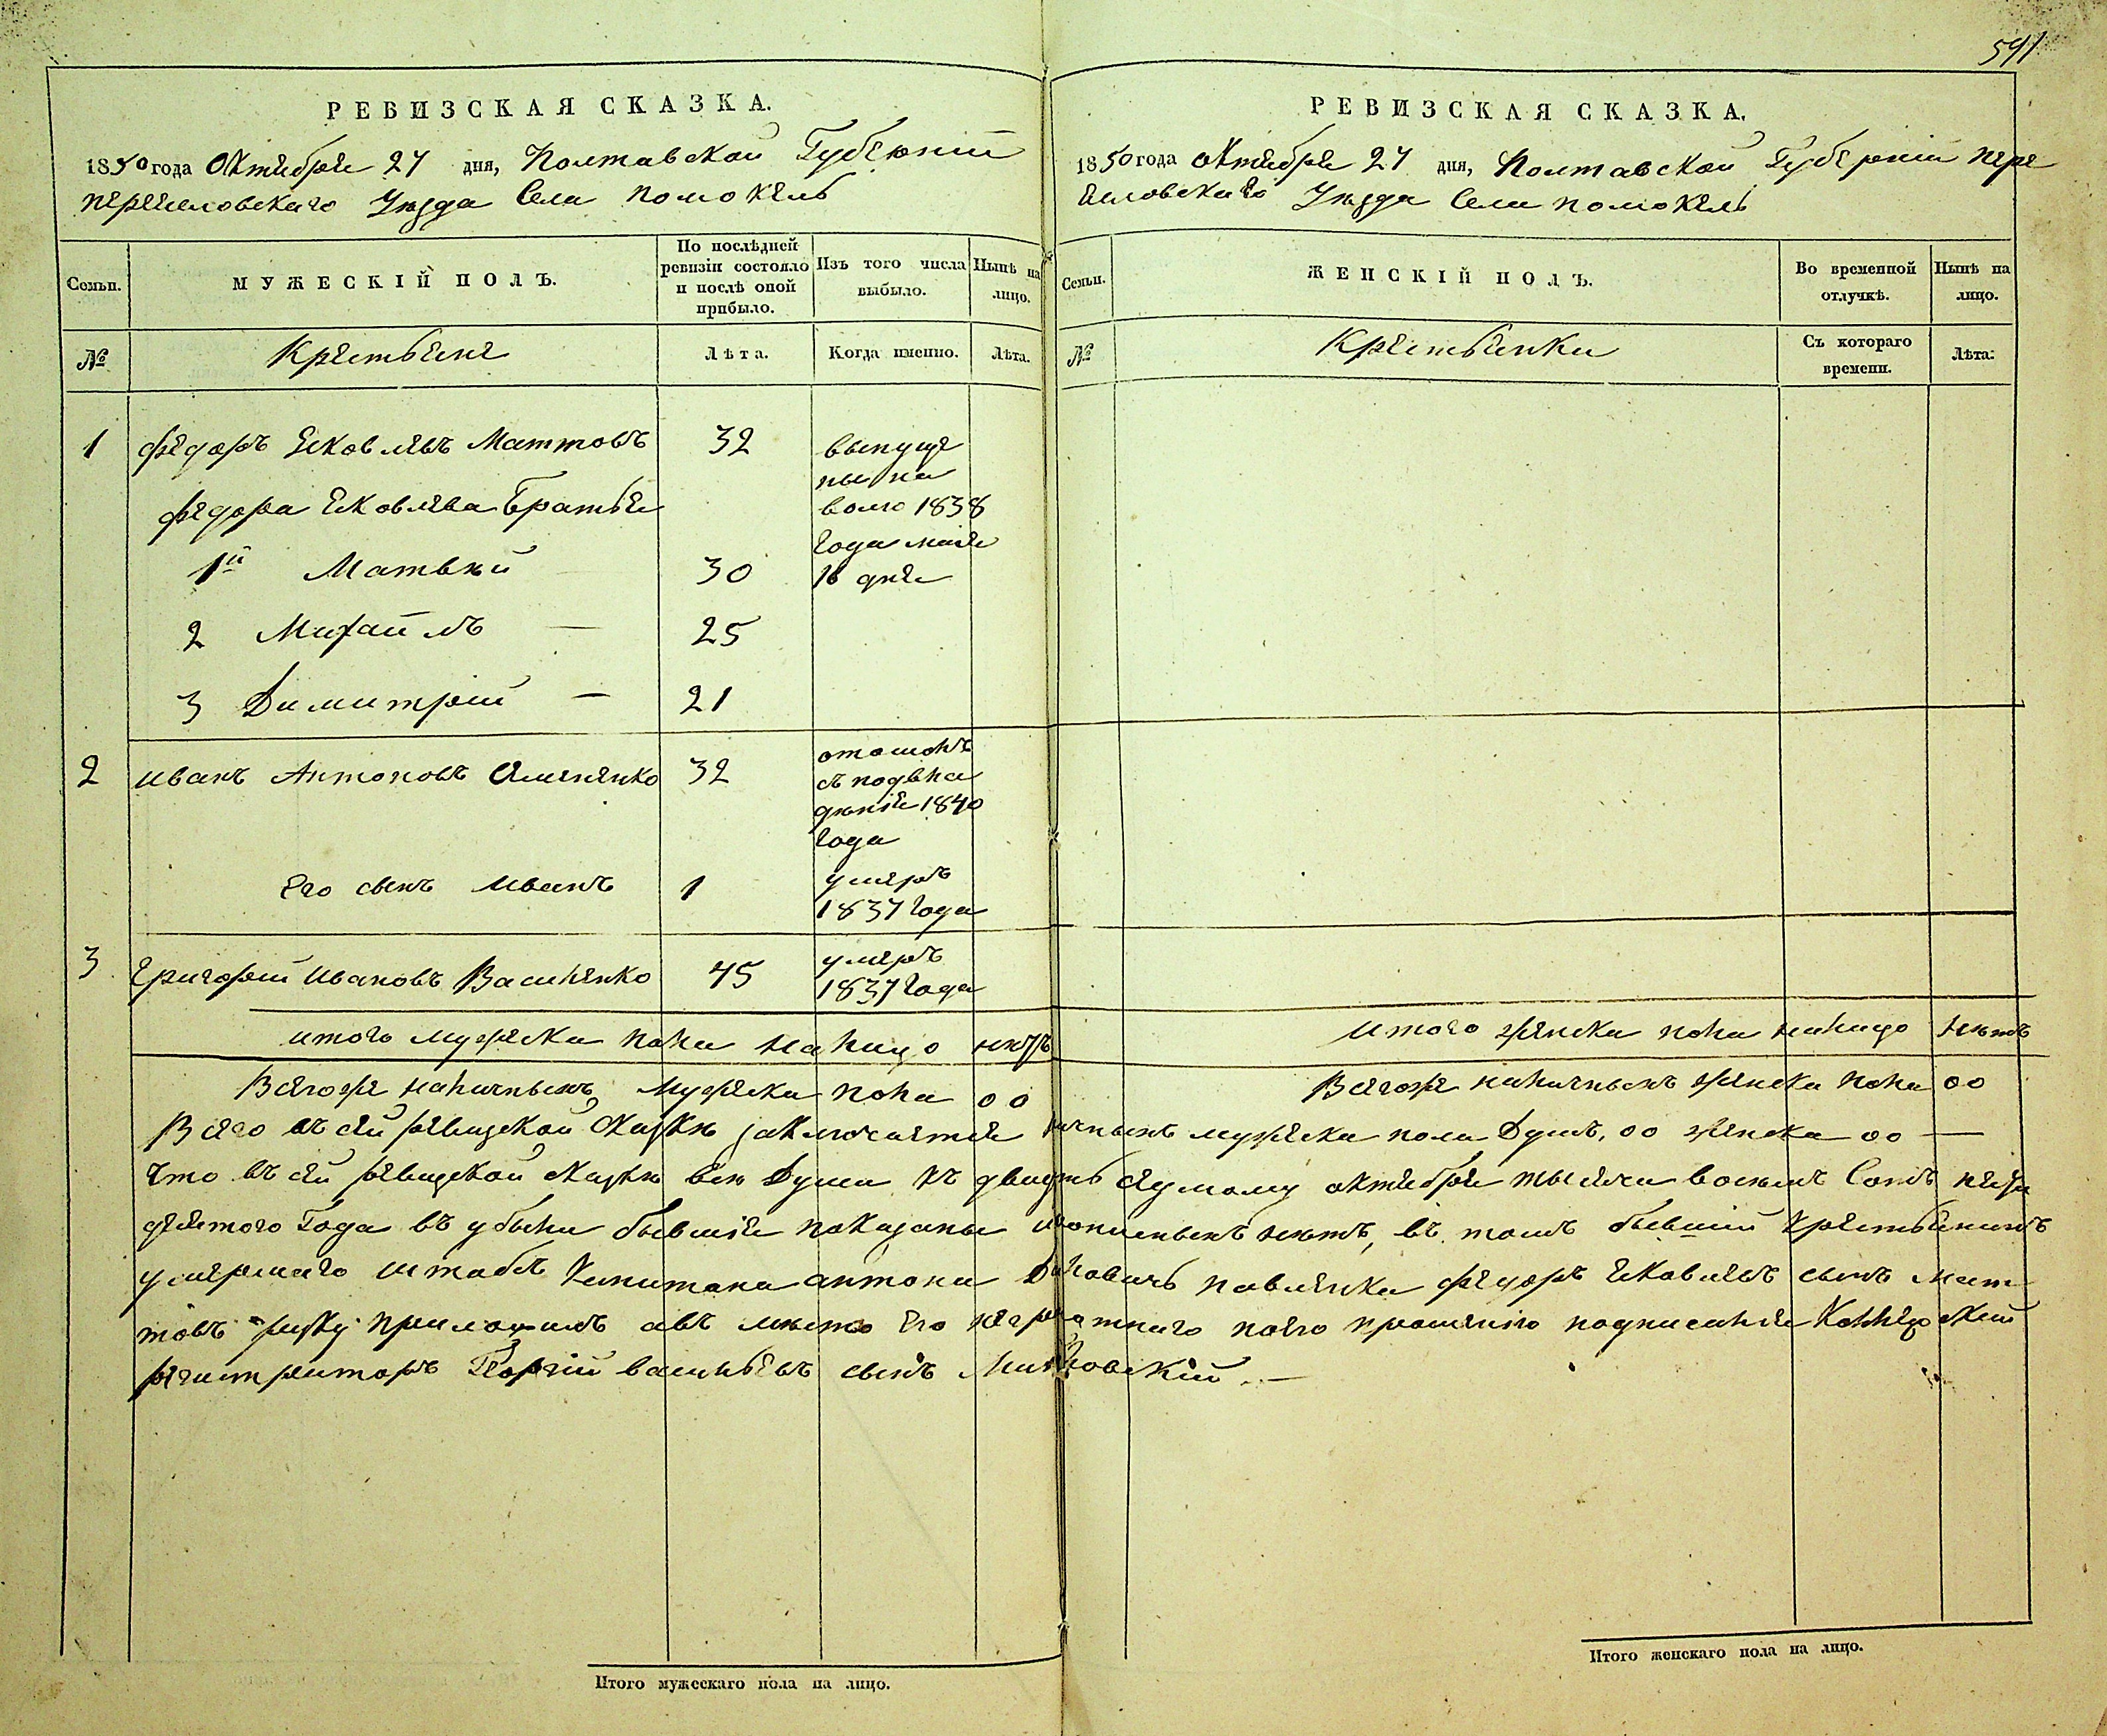 591
РЕВИЗСКАЯ СКАЗКА.
1850 года Октября 27 дня, Полтавской Губерніи
переяловскаго Уѣзда Села помокель
Семьи.
МУЖЕСКІЙ ПОЛЪ.
По послѣдней ревизіи состояло и послѣ оной прибыло.
Изъ того числа выбыло.
Нынѣ на лицо.
№
Крестьяне
Лѣта.
Когда именно.
Лѣта.
1 федоръ Яковлевъ Маттовъ 32 выпуще
ны на
федора Яковлева Братья волю 1838
года мая
1й Матвѣй 30 16 дня
2 Михайлъ — 25
3 Димитрій — 21
2 иванъ Антоновъ 32 отошолъ
съ подвла
дѣнія 1840
года
Его сынъ иванъ 1 умеръ
1837 года
3 григорій ивановъ Василенко 45 умеръ
1837 года
итого мужеска пола налицо нѣтъ
Всегоже наличныхъ мужеска пола 00
РЕВИЗСКАЯ СКАЗКА.
1850 года октября 27 дня, Полтавской Губерніи пере
яловскаго Уѣзда Села помокель
Семьи.
ЖЕНСКІЙ ПОЛЪ.
Во временной отлучкѣ.
Нынѣ на лицо.
№
Крестьянки
Съ котораго времени.
Лѣта.
итого женска пола налицо нѣтъ
Всегоже наличныхъ женска пола 00
Всего въ сей ревизской сказкѣ заключается мужеска пола Душъ, 00 женска 00 —
Что въ сей ревизской сказкѣ всѣ Души къ двадцать седмому октября тысяча восемъ Сотъ пяти
десятого Года въ убыли бывшія показаны нѣтъ, въ томъ бывшій крестьянинъ
умершаго штабсъ Капитана антона павленка федоръ Яковлевъ сынъ Мат
товъ руку приложилъ авъ мѣсто его неграматнаго поего прошенію подписался Колледжскій
регистраторъ Георгій васильевъ сынъ
Итого мужескаго пола на лицо.
Итого женскаго пола на лицо.